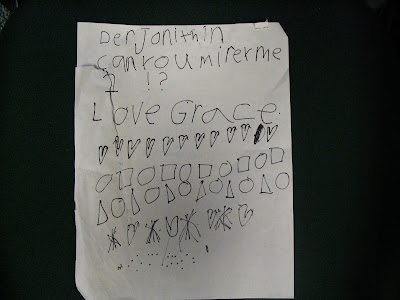 Derjonithin
canyoumirerme
2 !?
Love Grace.